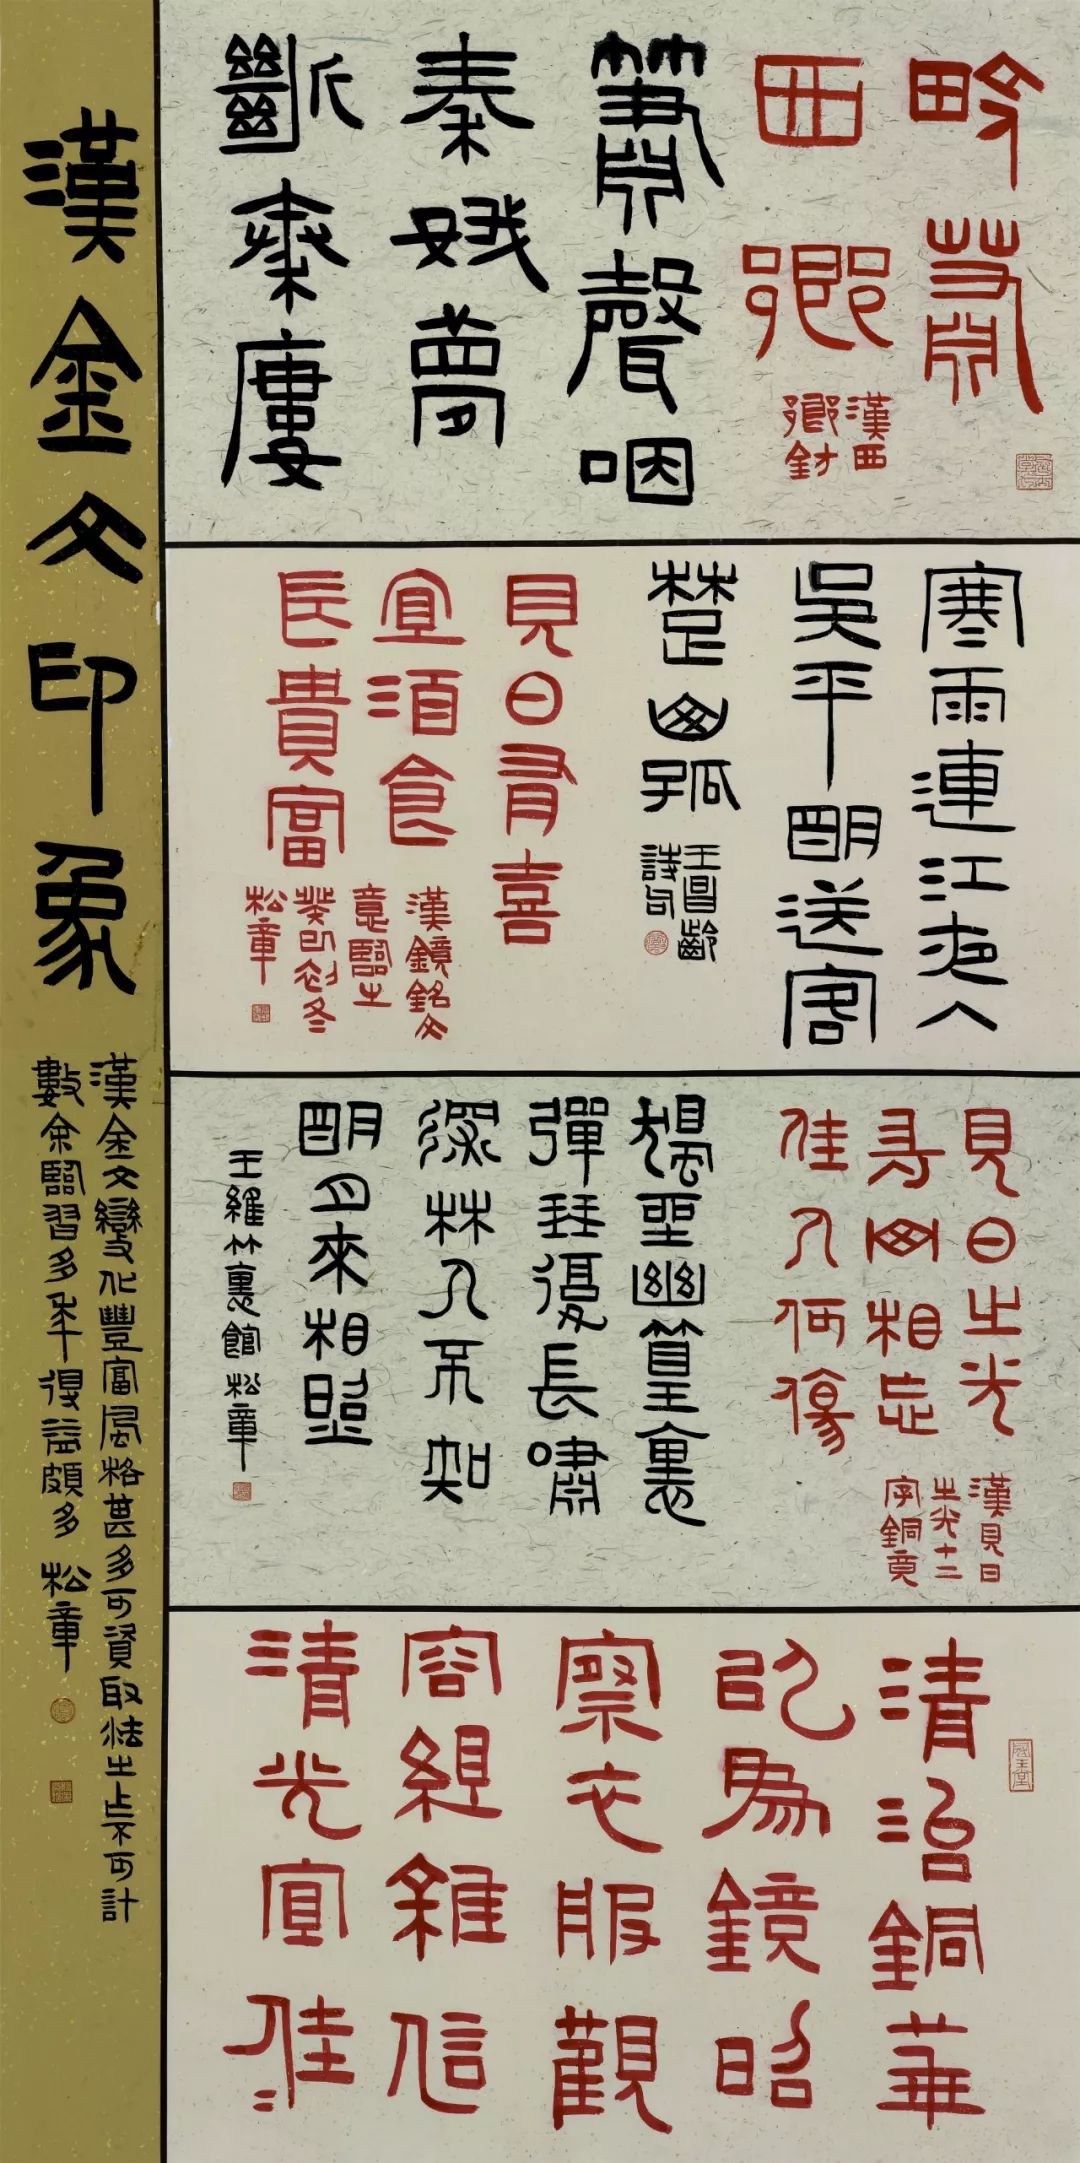 漢金文印象
漢金文變化豐富風格甚多可資取法之不可計
數余臨習多年得益頗多 松章
西鄉
漢西
鄉鈁
簫聲咽
秦娥夢
斷秦樓
寒雨連江夜入
吳平明送客
楚山孤
王昌齡
詩句
見日有喜
宜酒食
長貴富
漢鏡銘文
意臨之
癸卯初冬
松章
見日之光
毋相忘
佳人何傷
漢見日
之光十二
字銅竟
獨坐幽篁裏
彈琴復長嘯
深林人不知
明月來相照
王維竹裏館 松章
清治銅華
以為鏡昭
察衣服觀
容組雜信
清光宜佳